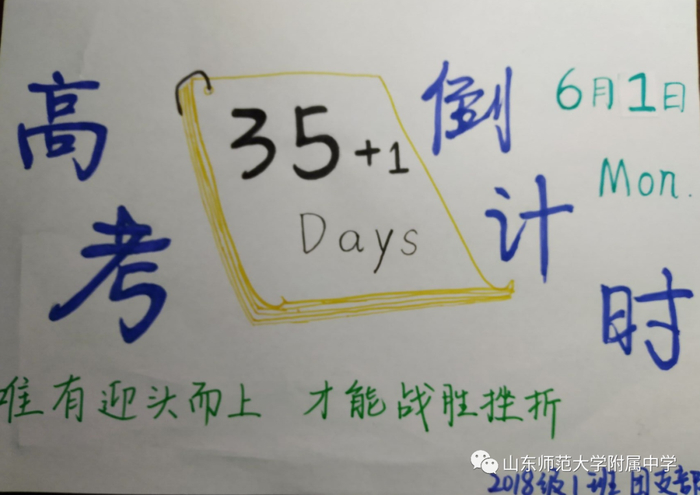 高考
35+1
Days
倒计时
6月1日
Mon.
唯有迎头而上 才能战胜挫折
山东师范大学附属中学
2018级1班团支部